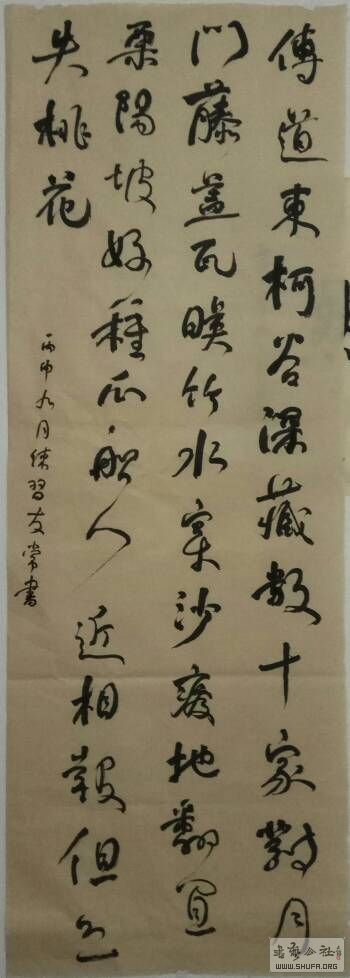 傳道東柯谷深藏數十家對月
门藤蓋瓦暎竹水穿沙瘦地翻宜
粟陽坡好種瓜船人近相報但恐
失桃花
丙申九月练習友常書
書法公社
WWW.SHUFA.ORG